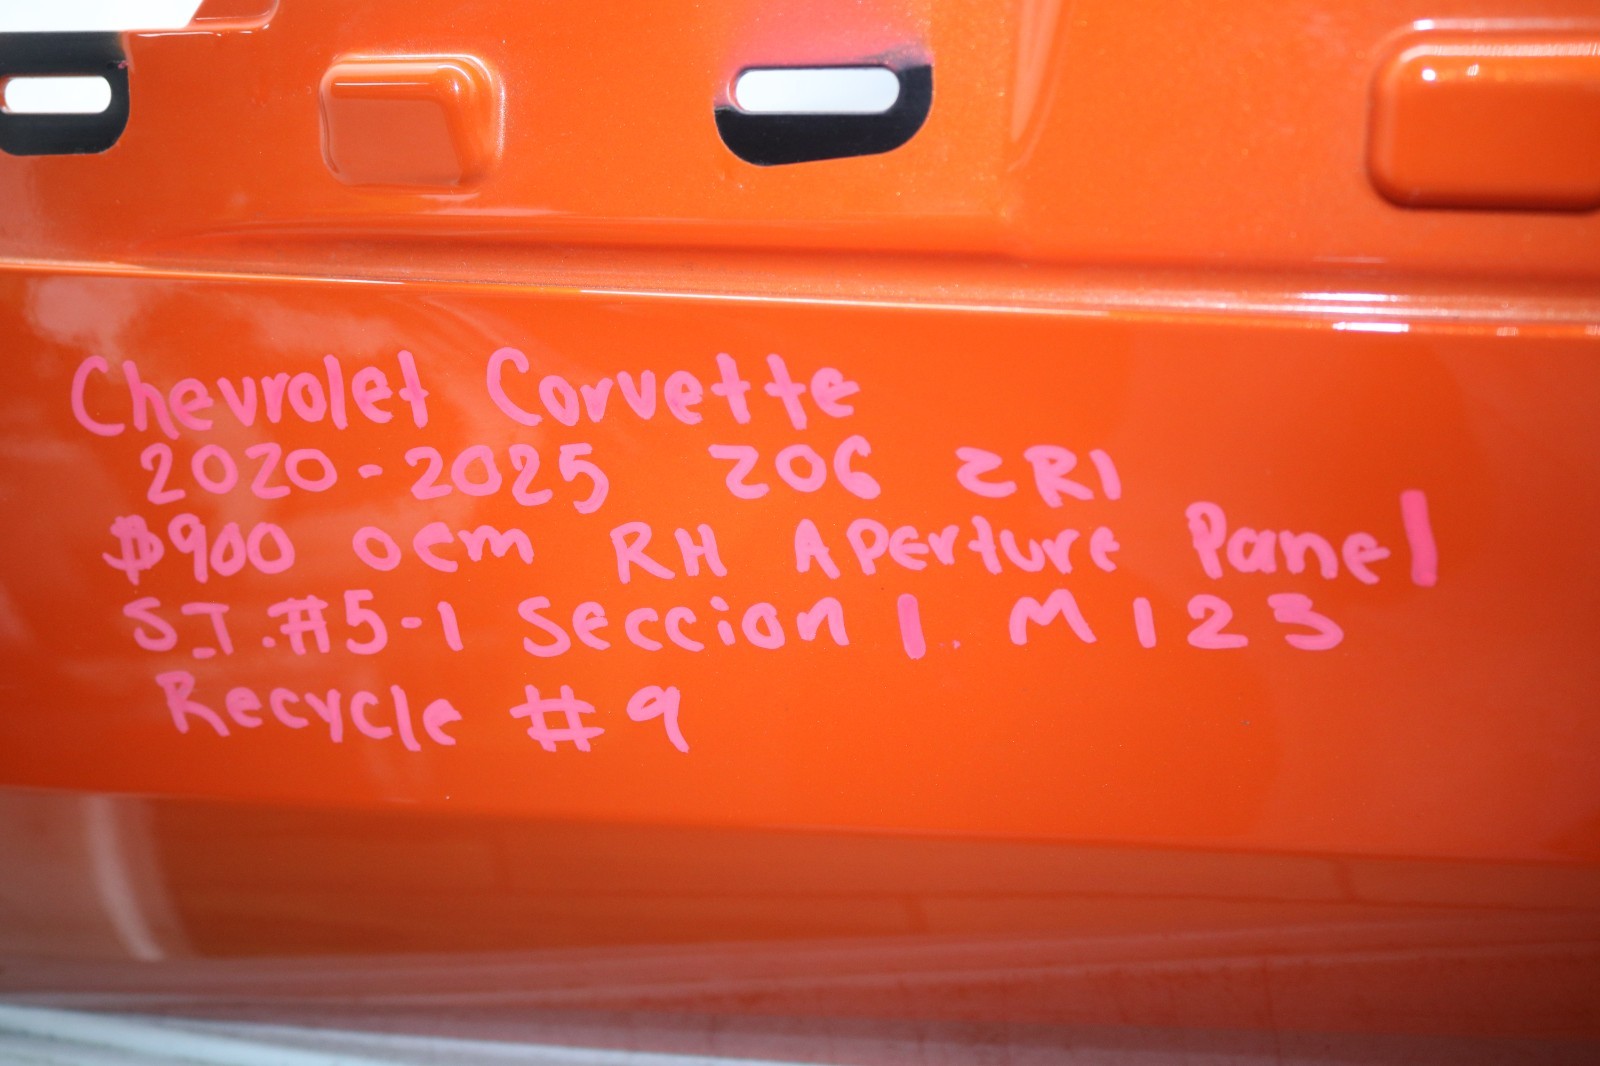 Chevrolet Corvette
2020-2025 Z06 ZR1
$900 oem RH Aperture Panel
ST.#5-1 Seccion 1. M123
Recycle #9